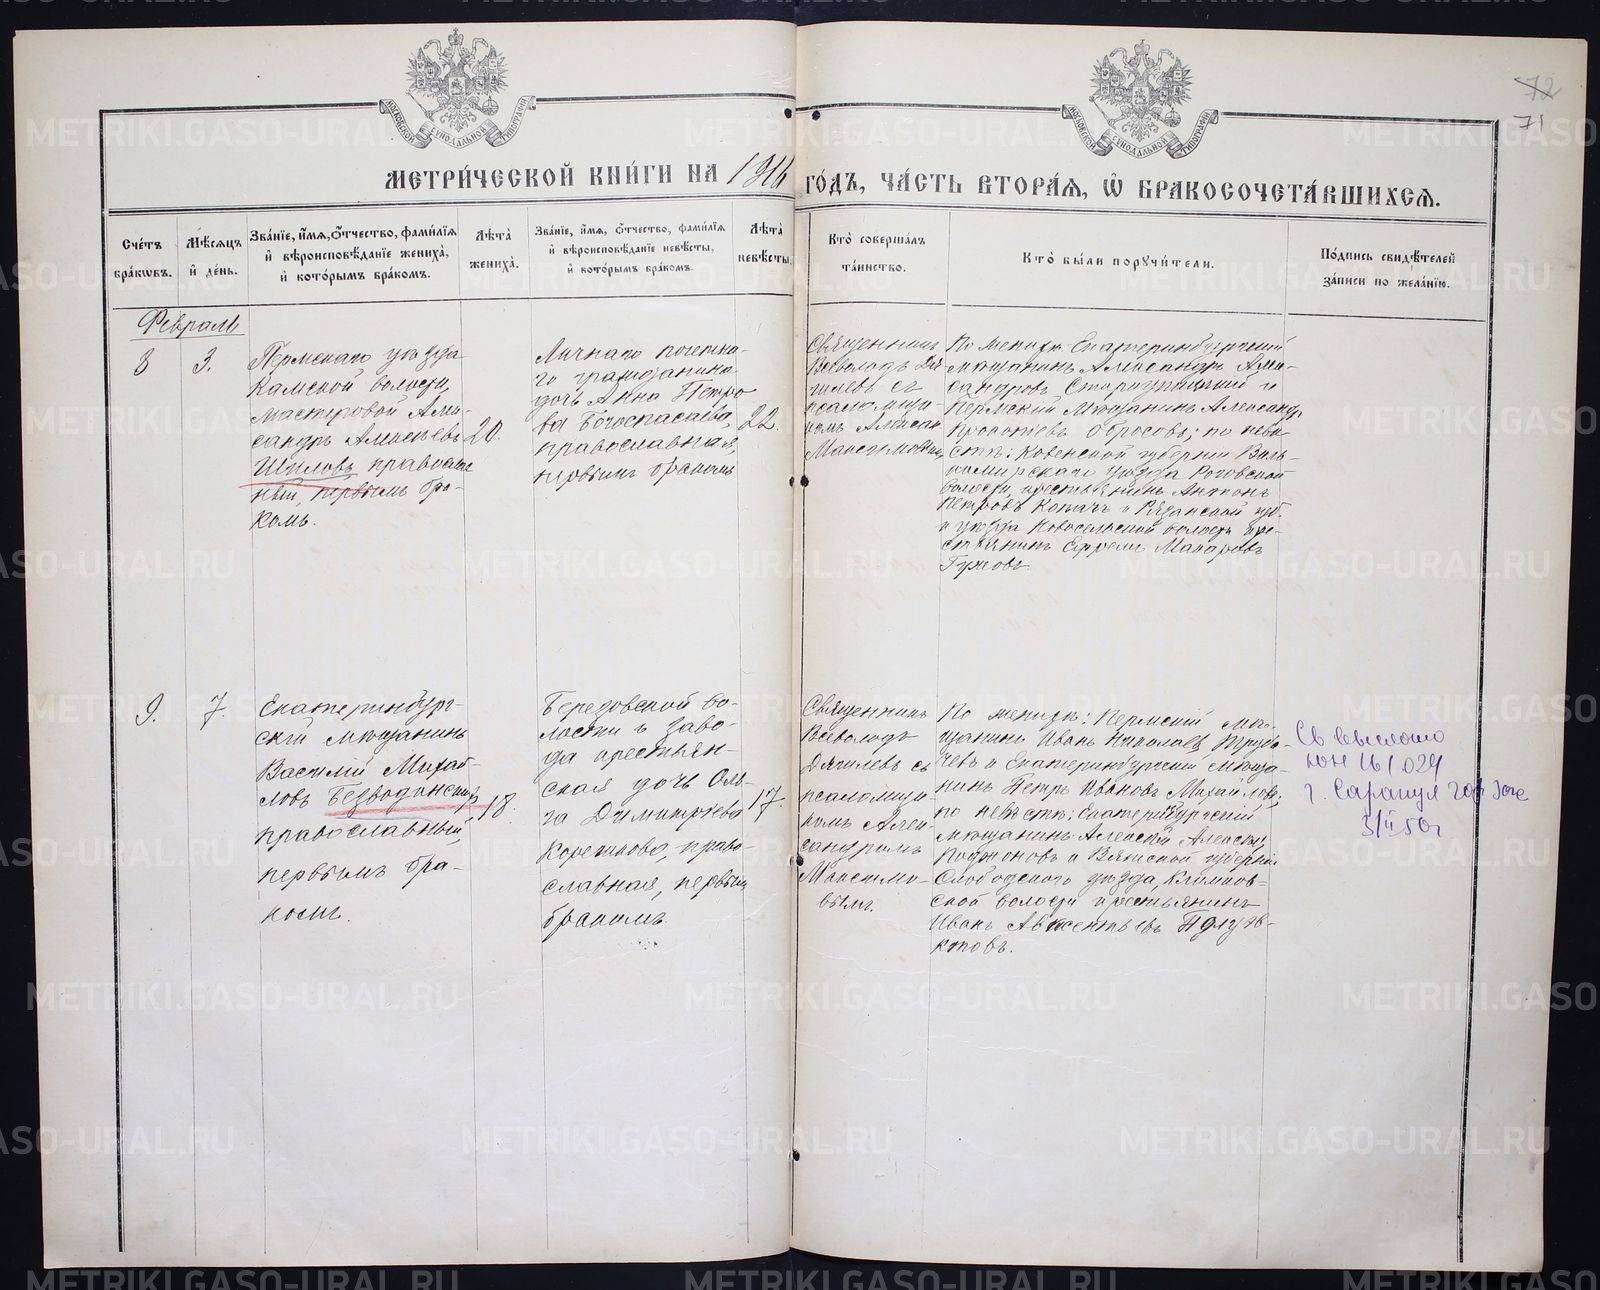 72
71
МОСКОВСКОЙ СУНОДАЛЬНОЙ ТИПОГРАФІИ
МОСКОВСКОЙ СУНОДАЛЬНОЙ ТИПОГРАФІИ
МЕТРИ́ЧЕСКОЙ КНИ́ГИ НА 1916 ГО́ДЪ, ЧА́СТЬ ВТОРА́Я, Ѽ БРАКОСОЧЕТА́ВШИХСЯ.
Сче́тъ
бра́кѡвъ.
Мѣ́сяцъ
и҆ де́нь.
Зва́нїе, и҆́мя, ѻ҆́тчество, фами́лїя
и҆ вѣроисповѣ́данїе жениха̀,
и҆ кото́рымъ бра́комъ.
Лѣ́та̀
жениха̀.
Зва́нїе, и҆́мя, ѻ҆́тчество, фами́лїя
и҆ вѣроисповѣ́данїе невѣ́сты,
и҆ кото́рымъ бра́комъ.
Лѣ́та̀
невѣ́сты.
Кто̀ соверша́лъ
та́инство.
Кто̀ бы́ли поручи́тели.
По́дпись свидѣ́телей
за́писи по жела́нїю.
Февраль
8
3.
Пермскаго уѣзда
Камской волости,
мастеровой Алек-
сандръ Алексѣевъ
Шиловъ православ-
ный, первымъ бра-
комъ.
20.
Личнаго почетна-
го гражданина
дочь Анна Петро
ва Богоспасаева,
православная,
первымъ бракомъ
22.
Священникъ
Всеволодъ Дя-
гилевъ съ
псаломщи-
комъ Алексан
Максимовым
По женихѣ: Екатеринбургскій
мѣщанинъ Александръ Алек-
сандровъ и
Пермскій мѣщанинъ Александръ
Прокопіевъ Обросовъ; по невѣ-
стѣ: Ковенской губерніи Виль-
комирскаго уѣзда Роговской
волости, крестьянинъ Антонъ
Петровъ и Рязанской губ.
и уѣзда Новосельской волости кре-
стьянинъ Ефремъ Макаровъ
Гужовъ.
9.
7.
Екатеринбург-
скій мѣщанинъ
Василій Михай-
ловъ Безводинскихъ
православный,
первымъ бра-
комъ.
18.
Березовской во-
лости и заво-
да крестьян-
ская дочь Оль-
га Димитріева
Корепанова, право-
славная, первымъ
бракомъ
17.
Священникъ
Всеволодъ
Дягилевъ съ
псаломщи-
комъ Алек-
сандромъ
Максимо-
вымъ.
По женихѣ: Пермскій мѣ-
щанинъ Иванъ Николаевъ Труба-
чевъ и Екатеринбургскій мѣща-
нинъ Петръ Ивановъ Михайловъ;
по невѣстѣ: Екатеринбургскій
мѣщанинъ Алексѣй Алексѣевъ
и Вятской губерніи
Слободского уѣзда, Климков-
ской волости крестьянинъ
Иванъ Авксентьевъ Полуэ-
ктовъ.
Св выслано
г. Сарапул гор Загс
3/II 50г